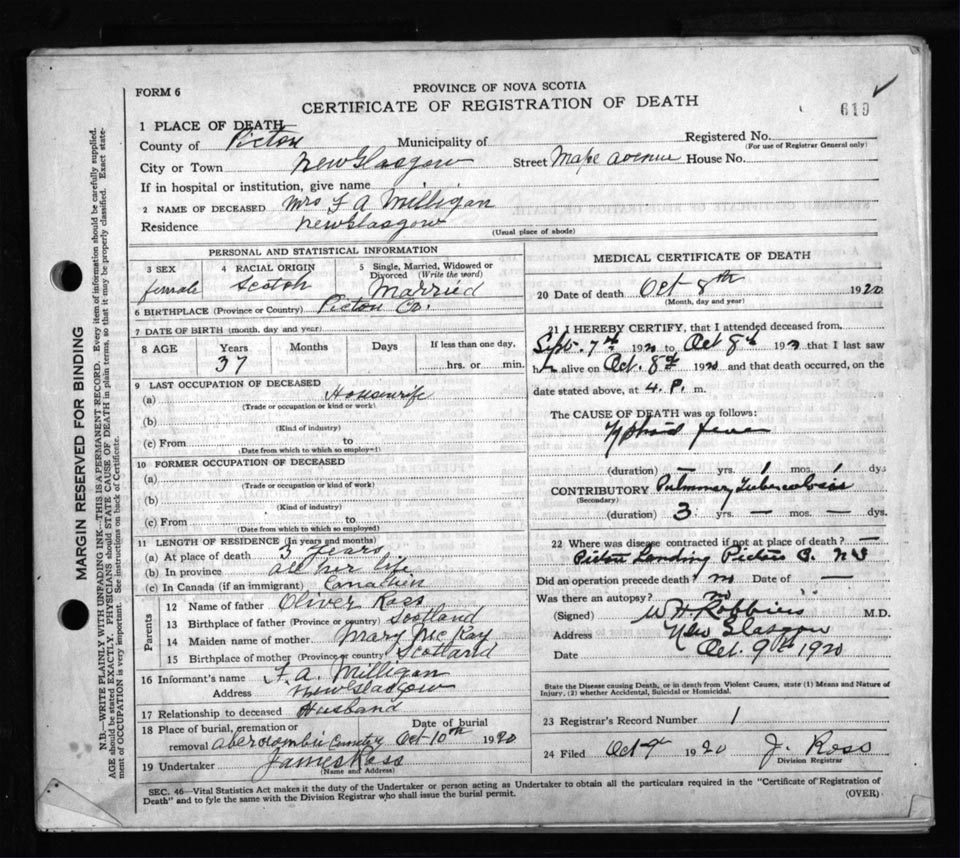 FORM 6
PROVINCE OF NOVA SCOTIA
CERTIFICATE OF REGISTRATION OF DEATH
619
1 PLACE OF DEATH
County of Picton Municipality of
Registered No.
(For use of Registrar General only)
City or Town New Glasgow Street Maple avenue House No.
If in hospital or institution, give name
2 NAME OF DECEASED Mrs F A Milligan
Residence New Glasgow
(Usual place of abode)
PERSONAL AND STATISTICAL INFORMATION
3 SEX female
4 RACIAL ORIGIN Scotch
5 Single, Married, Widowed or Divorced (Write the word) Married
6 BIRTHPLACE (Province or Country) Picton Co.
7 DATE OF BIRTH (month, day and year)
8 AGE Years 37 Months Days If less than one day, hrs. or min.
9 LAST OCCUPATION OF DECEASED
(a) Housewife
(Trade or occupation or kind of work)
(b)
(Kind of industry)
(c) From to
(Date from which to which so employed)
10 FORMER OCCUPATION OF DECEASED
(a)
(Trade or occupation or kind of work)
(b)
(Kind of industry)
(c) From to
(Date from which to which so employed)
11 LENGTH OF RESIDENCE (In years and months)
(a) At place of death 3 years
(b) In province all her life
(c) In Canada (if an immigrant) Canadien
Parents
12 Name of father Oliver Ross
13 Birthplace of father (Province or country) Scotland
14 Maiden name of mother Mary McKay
15 Birthplace of mother (Province or country) Scotland
16 Informant's name F. A. Milligan
Address New Glasgow
17 Relationship to deceased Husband
18 Place of burial, cremation or removal Abercrombie Cemetery Date of burial Oct 10th 1920
19 Undertaker James Ross
(Name and Address)
MEDICAL CERTIFICATE OF DEATH
20 Date of death Oct 8th 1920
(Month, day and year)
21 I HEREBY CERTIFY, that I attended deceased from
Sept. 7th 1920 to Oct 8th 1920 that I last saw
h alive on Oct. 8th 1920 and that death occurred, on the
date stated above, at 4. P. m.
The CAUSE OF DEATH was as follows:
Typhoid fever
(duration) — yrs. 1 mos. 1 dys
CONTRIBUTORY Pulmonary Tuberculosis
(Secondary)
(duration) 3 yrs. — mos. — dys.
22 Where was disease contracted if not at place of death? —
Picton Landing Picton Co. N S
Did an operation precede death? no Date of —
Was there an autopsy? no
(Signed) W H Robbins M.D.
Address New Glasgow
Date Oct. 9th 1920
State the Disease causing Death, or in death from Violent Causes, state (1) Means and Nature of
Injury, (2) whether Accidental, Suicidal or Homicidal.
23 Registrar's Record Number 1
24 Filed Oct 9th 1920 J. Ross
Division Registrar
SEC. 46—Vital Statistics Act makes it the duty of the Undertaker or person acting as Undertaker to obtain all the particulars required in the "Certificate of Registration of
Death" and to fyle the same with the Division Registrar who shall issue the burial permit. (OVER)
MARGIN RESERVED FOR BINDING
N.B.—WRITE PLAINLY WITH UNFADING INK—THIS IS A PERMANENT RECORD. Every item of information should be carefully supplied.
AGE should be stated EXACTLY. PHYSICIANS should STATE CAUSE OF DEATH in plain terms, so that it may be properly classified. Exact statement of OCCUPATION is very important. See instructions on back of Certificate.